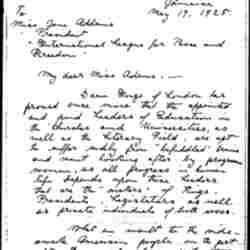 Jamaica
To May 19, 1925.
Miss Jane Addams
President
"International League for Peace and
Freedom"
My dear Miss Addams,—
Dean Inge of London has
proved once more that the appointed
and paid Leaders of Education in
the Churches and Universities, as
well as the Literary Field, are apt
to suffer sadly from "befuddled" brains
and want looking after by
women, as all progress in human
life depends upon these
that are the "sisters" of Kings,
Presidents, Legislators as well
as private individuals of both sexes.
What an insult to the
American people, on a par